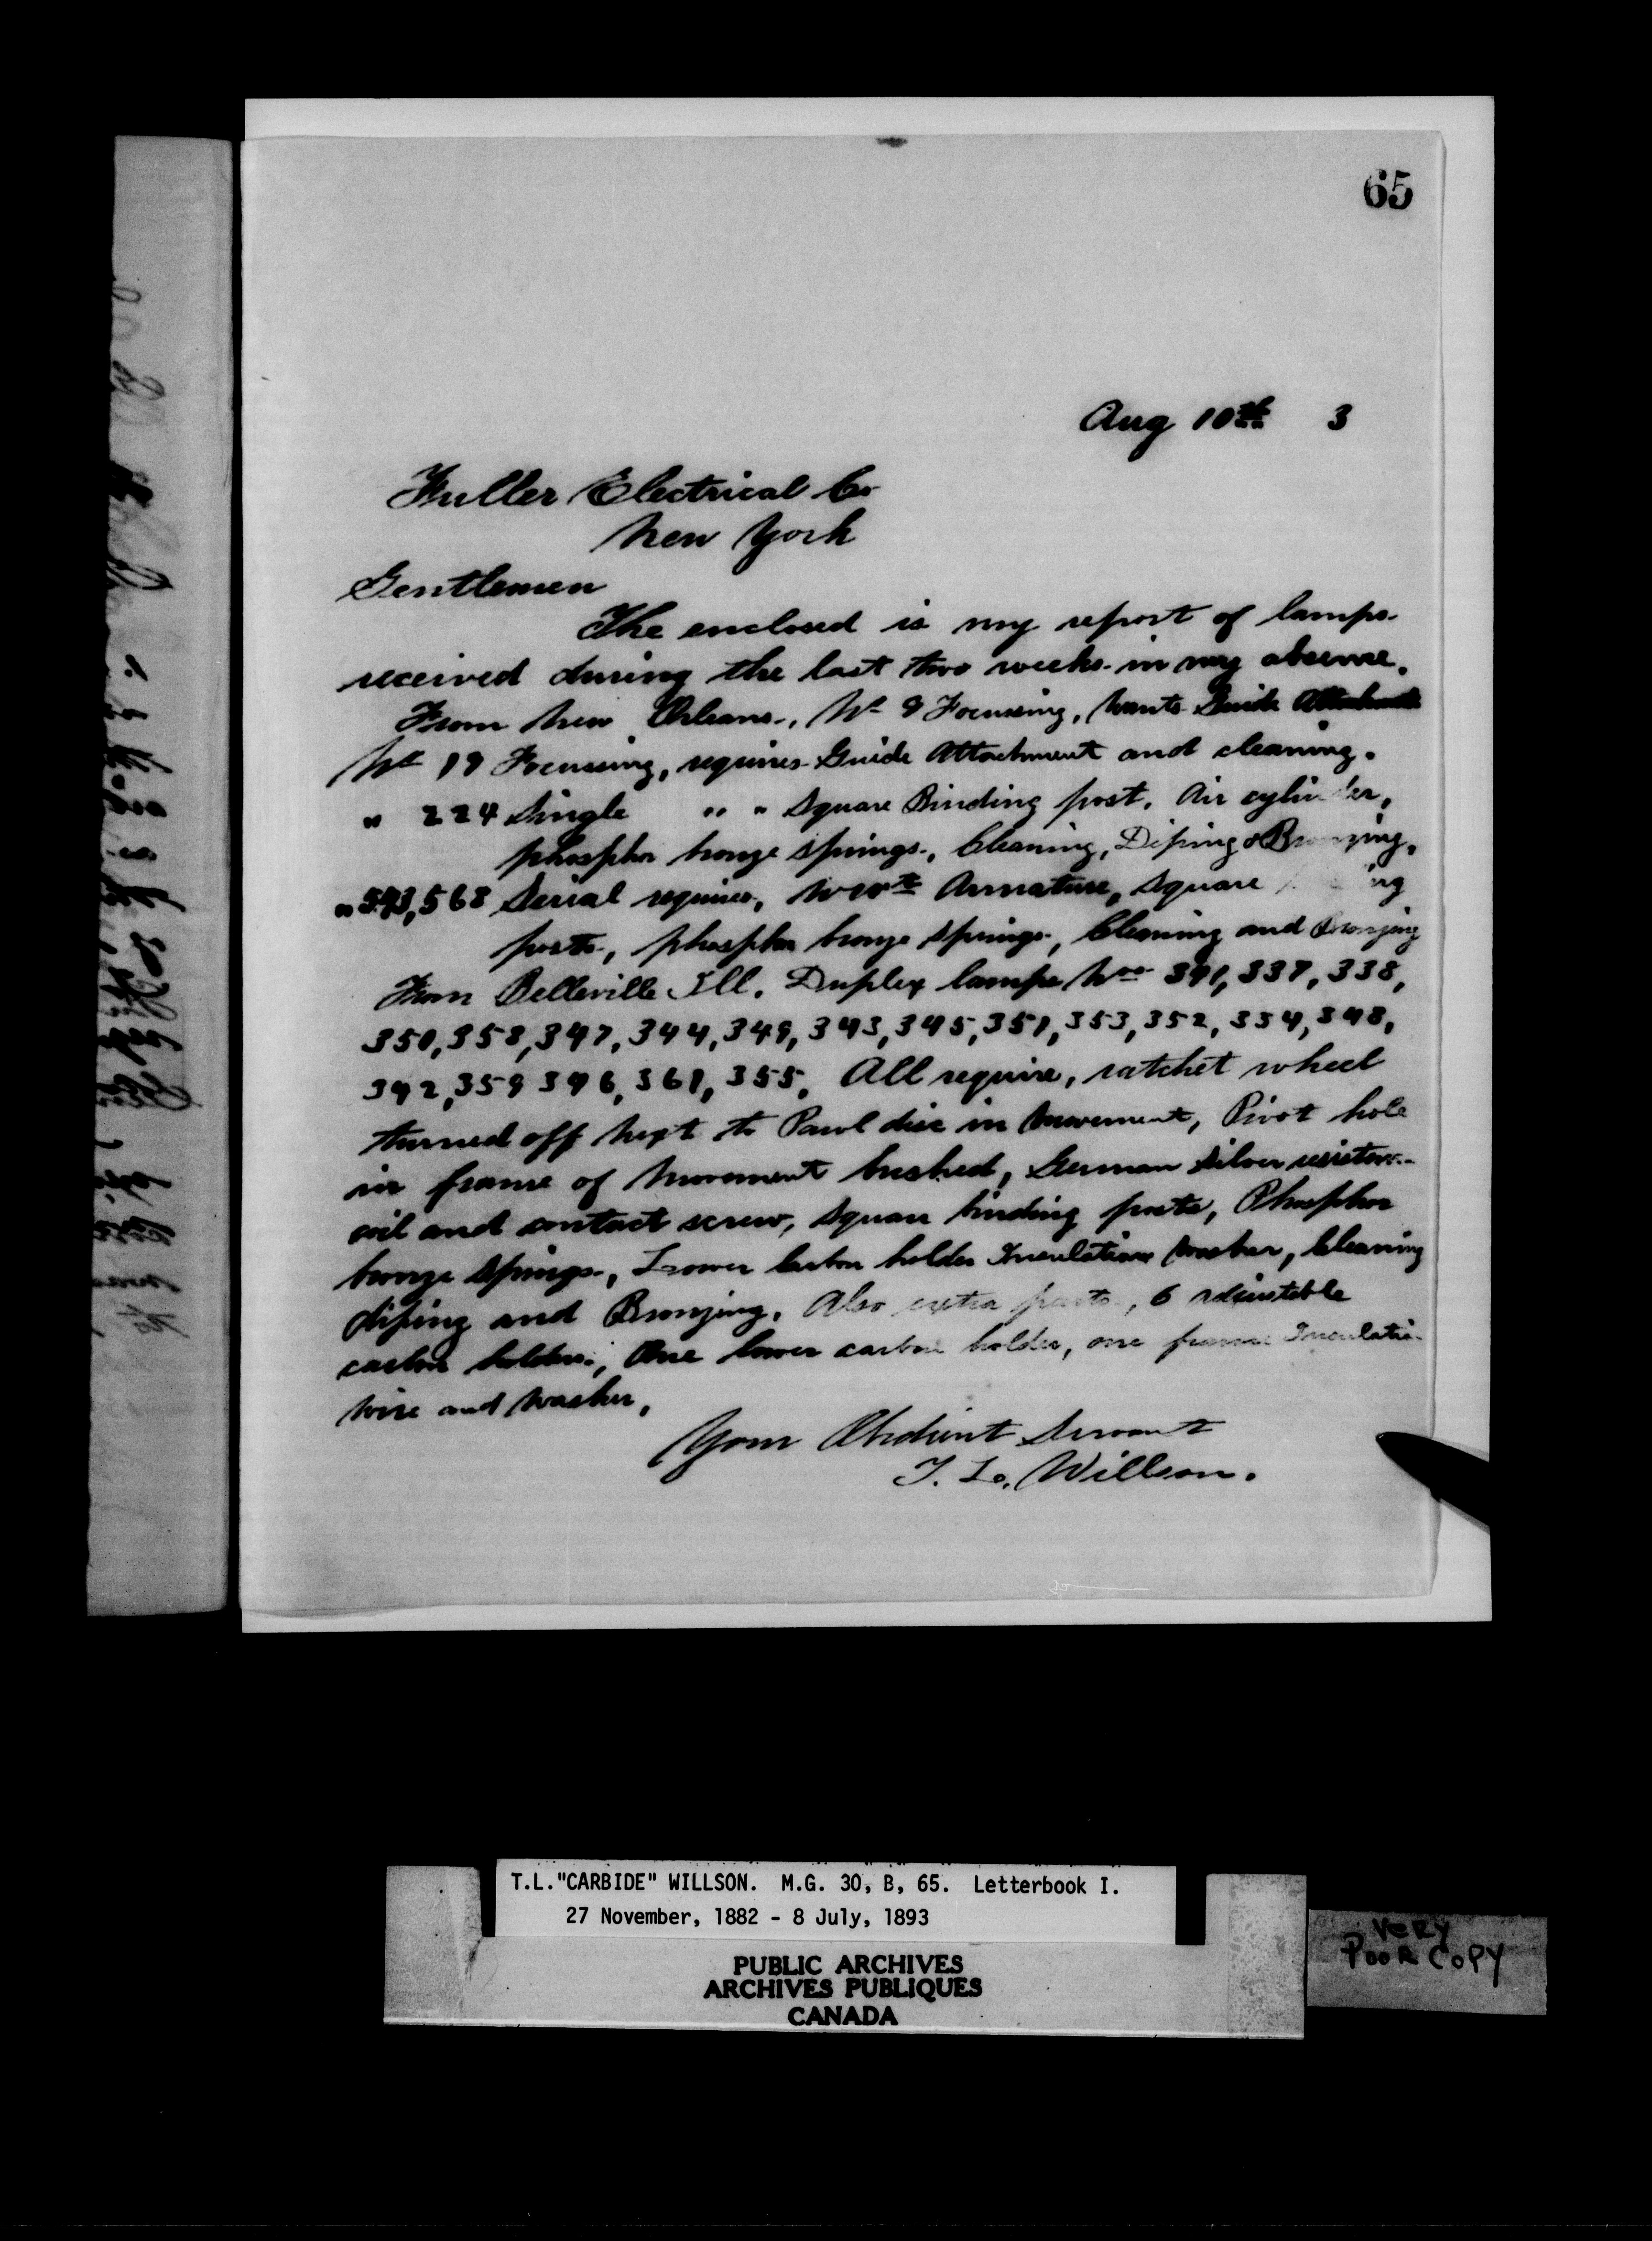 65
Aug 10th 3
Fuller Electrical Co
New York
Gentlemen
The enclosed is my report of lamps
received during the last two weeks in my absence.
From New Orleans, No 9 Focussing, wants Guide Attachment
No 19 Focussing, requires Guide Attachment and cleaning.
" 224 Single " " Square Binding post, Air cylinder,
phosphor bronze springs, Cleaning, Diping & Bronzing,
" 543, 568 Serial requires, Armature, square
posts, phosphor bronze springs, Cleaning and Bronzing
From Belleville Ill. Duplex lamps Nos 341, 337, 338,
350, 358, 347, 344, 349, 343, 345, 351, 353, 352, 354, 348,
342, 359 346, 361, 355, All require, ratchet wheel
turned off next to Pawl disc in movement, Pivot hole
in frame of movement bushed, German silver
coil and contact screw, square binding posts, Phosphor
bronze springs, Lower carbon holder Insulation washer, Cleaning
diping and Bronzing. Also extra parts, 6 adjustable
carbon holders, One lower carbon holder, one frame Insulatio
wire and washer,
Your Obedient Servant
T. L. Willson.
T.L."CARBIDE" WILLSON. M.G. 30, B, 65. Letterbook I.
27 November, 1882 - 8 July, 1893
PUBLIC ARCHIVES
ARCHIVES PUBLIQUES
CANADA
VERY
POOR COPY